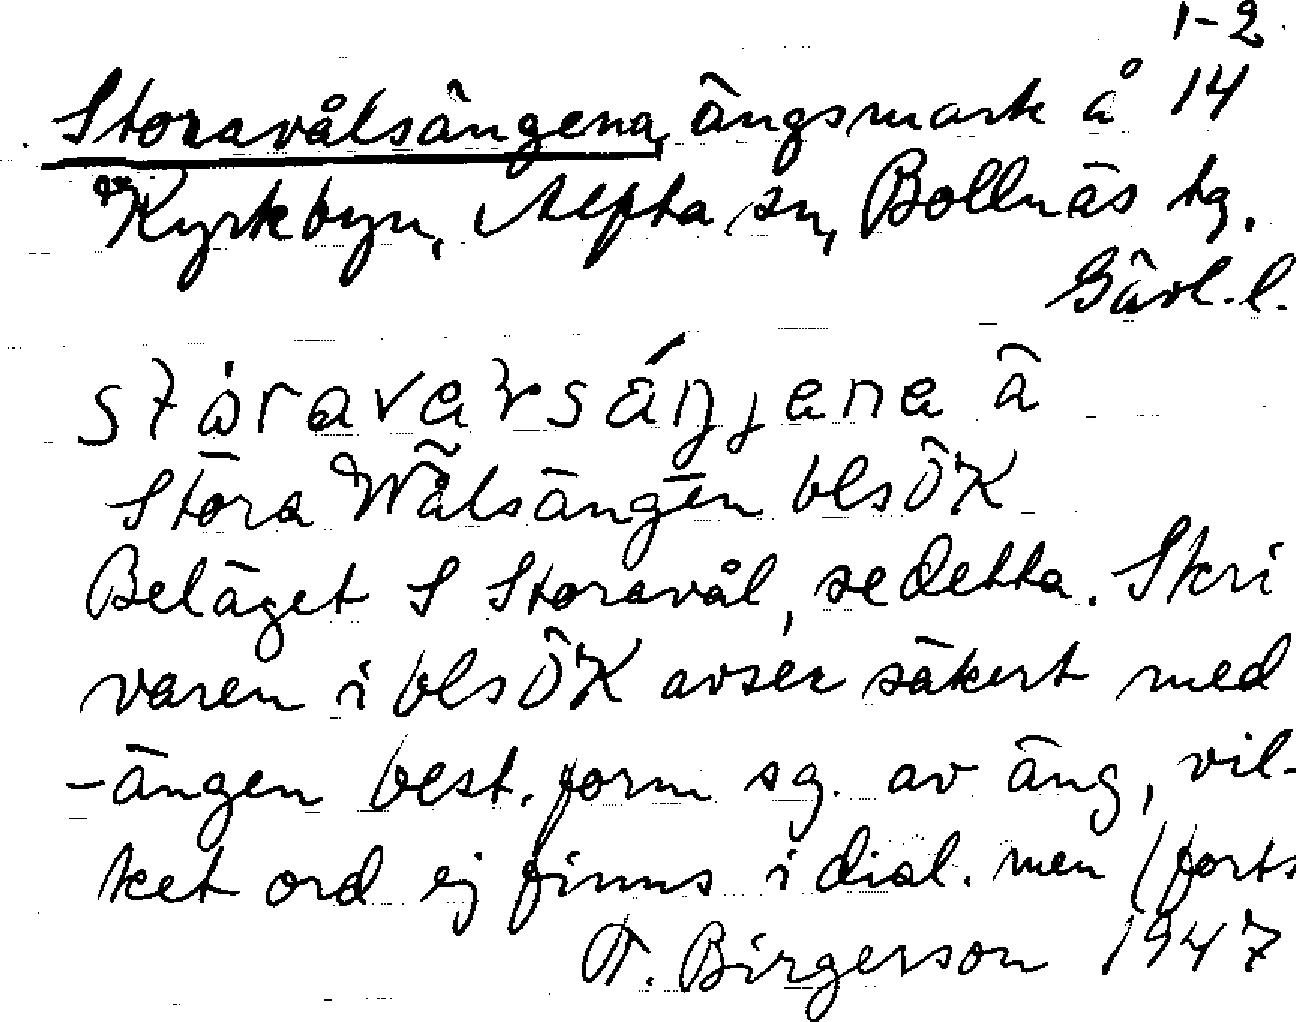 1-2
Storavålsängena, ängsmark å 14
Kyrkbyn, Alfta sn, Bollnäs tg.
Gävl. l.
Stora Wålsängen blsÖK
Beläget S Storavål, se detta. Skri
varen i blsÖK avser säkert med
-ängen best. form sg. av äng, vil-
ket ord ej finns i dial. men (forts
T. Birgerson 1947